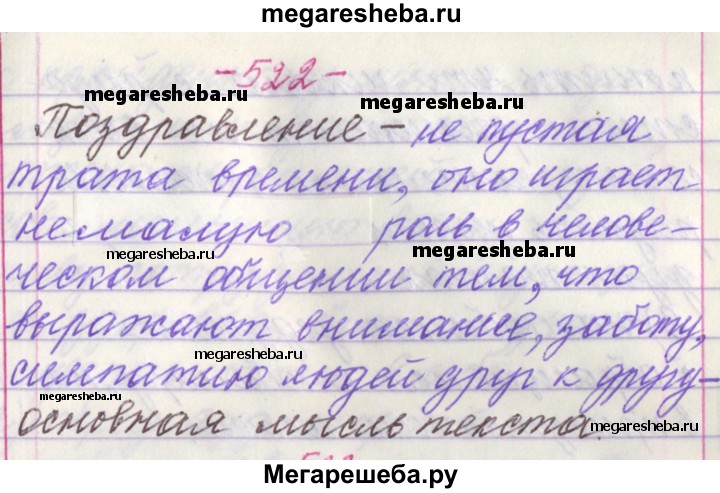 megaresheba.ru
-522-
megaresheba.ru
megaresheba.ru
Поздравление – не пустая
трата времени, оно играет
немалую роль в челове-
megaresheba.ru
megaresheba.ru
ческом общении тем, что
выражают внимание, заботу,
megaresheba.ru
симпатию людей друг к другу-
основная мысль текста.
megaresheba.ru
Мегарешеба.ру